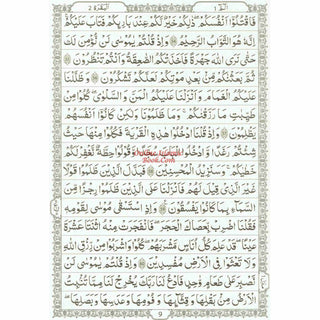 البقرة ٢
الٓمٓ ١
فَاقْتُلُوْۤا اَنْفُسَكُمْ ؕ ذٰلِكُمْ خَیْرٌ لَّكُمْ عِنْدَ بَارِئِكُمْ ؕ فَتَابَ عَلَیْكُمْ ؕ
اِنَّهٗ هُوَ التَّوَّابُ الرَّحِیْمُ وَ اِذْ قُلْتُمْ یٰمُوْسٰى لَنْ نُّؤْمِنَ لَكَ
حَتّٰى نَرَى اللّٰهَ جَهْرَةً فَاَخَذَتْكُمُ الصّٰعِقَةُ وَ اَنْتُمْ تَنْظُرُوْنَ
ثُمَّ بَعَثْنٰكُمْ مِّنْۢ بَعْدِ مَوْتِكُمْ لَعَلَّكُمْ تَشْكُرُوْنَ وَ ظَلَّلْنَا
عَلَیْكُمُ الْغَمَامَ وَ اَنْزَلْنَا عَلَیْكُمُ الْمَنَّ وَ السَّلْوٰى ؕ كُلُوْا مِنْ
طَیِّبٰتِ مَا رَزَقْنٰكُمْ ؕ وَ مَا ظَلَمُوْنَا وَ لٰكِنْ كَانُوْۤا اَنْفُسَهُمْ
یَظْلِمُوْنَ وَ اِذْ قُلْنَا ادْخُلُوْا هٰذِهِ الْقَرْیَةَ فَكُلُوْا مِنْهَا حَیْثُ
شِئْتُمْ رَغَدًا وَّ ادْخُلُوا الْبَابَ سُجَّدًا وَّ قُوْلُوْا حِطَّةٌ نَّغْفِرْ لَكُمْ
خَطٰیٰكُمْ ؕ وَ سَنَزِیْدُ الْمُحْسِنِیْنَ فَبَدَّلَ الَّذِیْنَ ظَلَمُوْا قَوْلًا
غَیْرَ الَّذِیْ قِیْلَ لَهُمْ فَاَنْزَلْنَا عَلَى الَّذِیْنَ ظَلَمُوْا رِجْزًا مِّنَ
السَّمَآءِ بِمَا كَانُوْا یَفْسُقُوْنَ وَ اِذِ اسْتَسْقٰى مُوْسٰى لِقَوْمِهٖ
فَقُلْنَا اضْرِبْ بِّعَصَاكَ الْحَجَرَ ؕ فَانْفَجَرَتْ مِنْهُ اثْنَتَا عَشْرَةَ
عَیْنًا ؕ قَدْ عَلِمَ كُلُّ اُنَاسٍ مَّشْرَبَهُمْ ؕ كُلُوْا وَ اشْرَبُوْا مِنْ رِّزْقِ اللّٰهِ
وَ لَا تَعْثَوْا فِی الْاَرْضِ مُفْسِدِیْنَ وَ اِذْ قُلْتُمْ یٰمُوْسٰى لَنْ
نَّصْبِرَ عَلٰى طَعَامٍ وَّاحِدٍ فَادْعُ لَنَا رَبَّكَ یُخْرِجْ لَنَا مِمَّا تُنْۢبِتُ
الْاَرْضُ مِنْۢ بَقْلِهَا وَ قِثَّآئِهَا وَ فُوْمِهَا وَ عَدَسِهَا وَ بَصَلِهَا ؕ
9